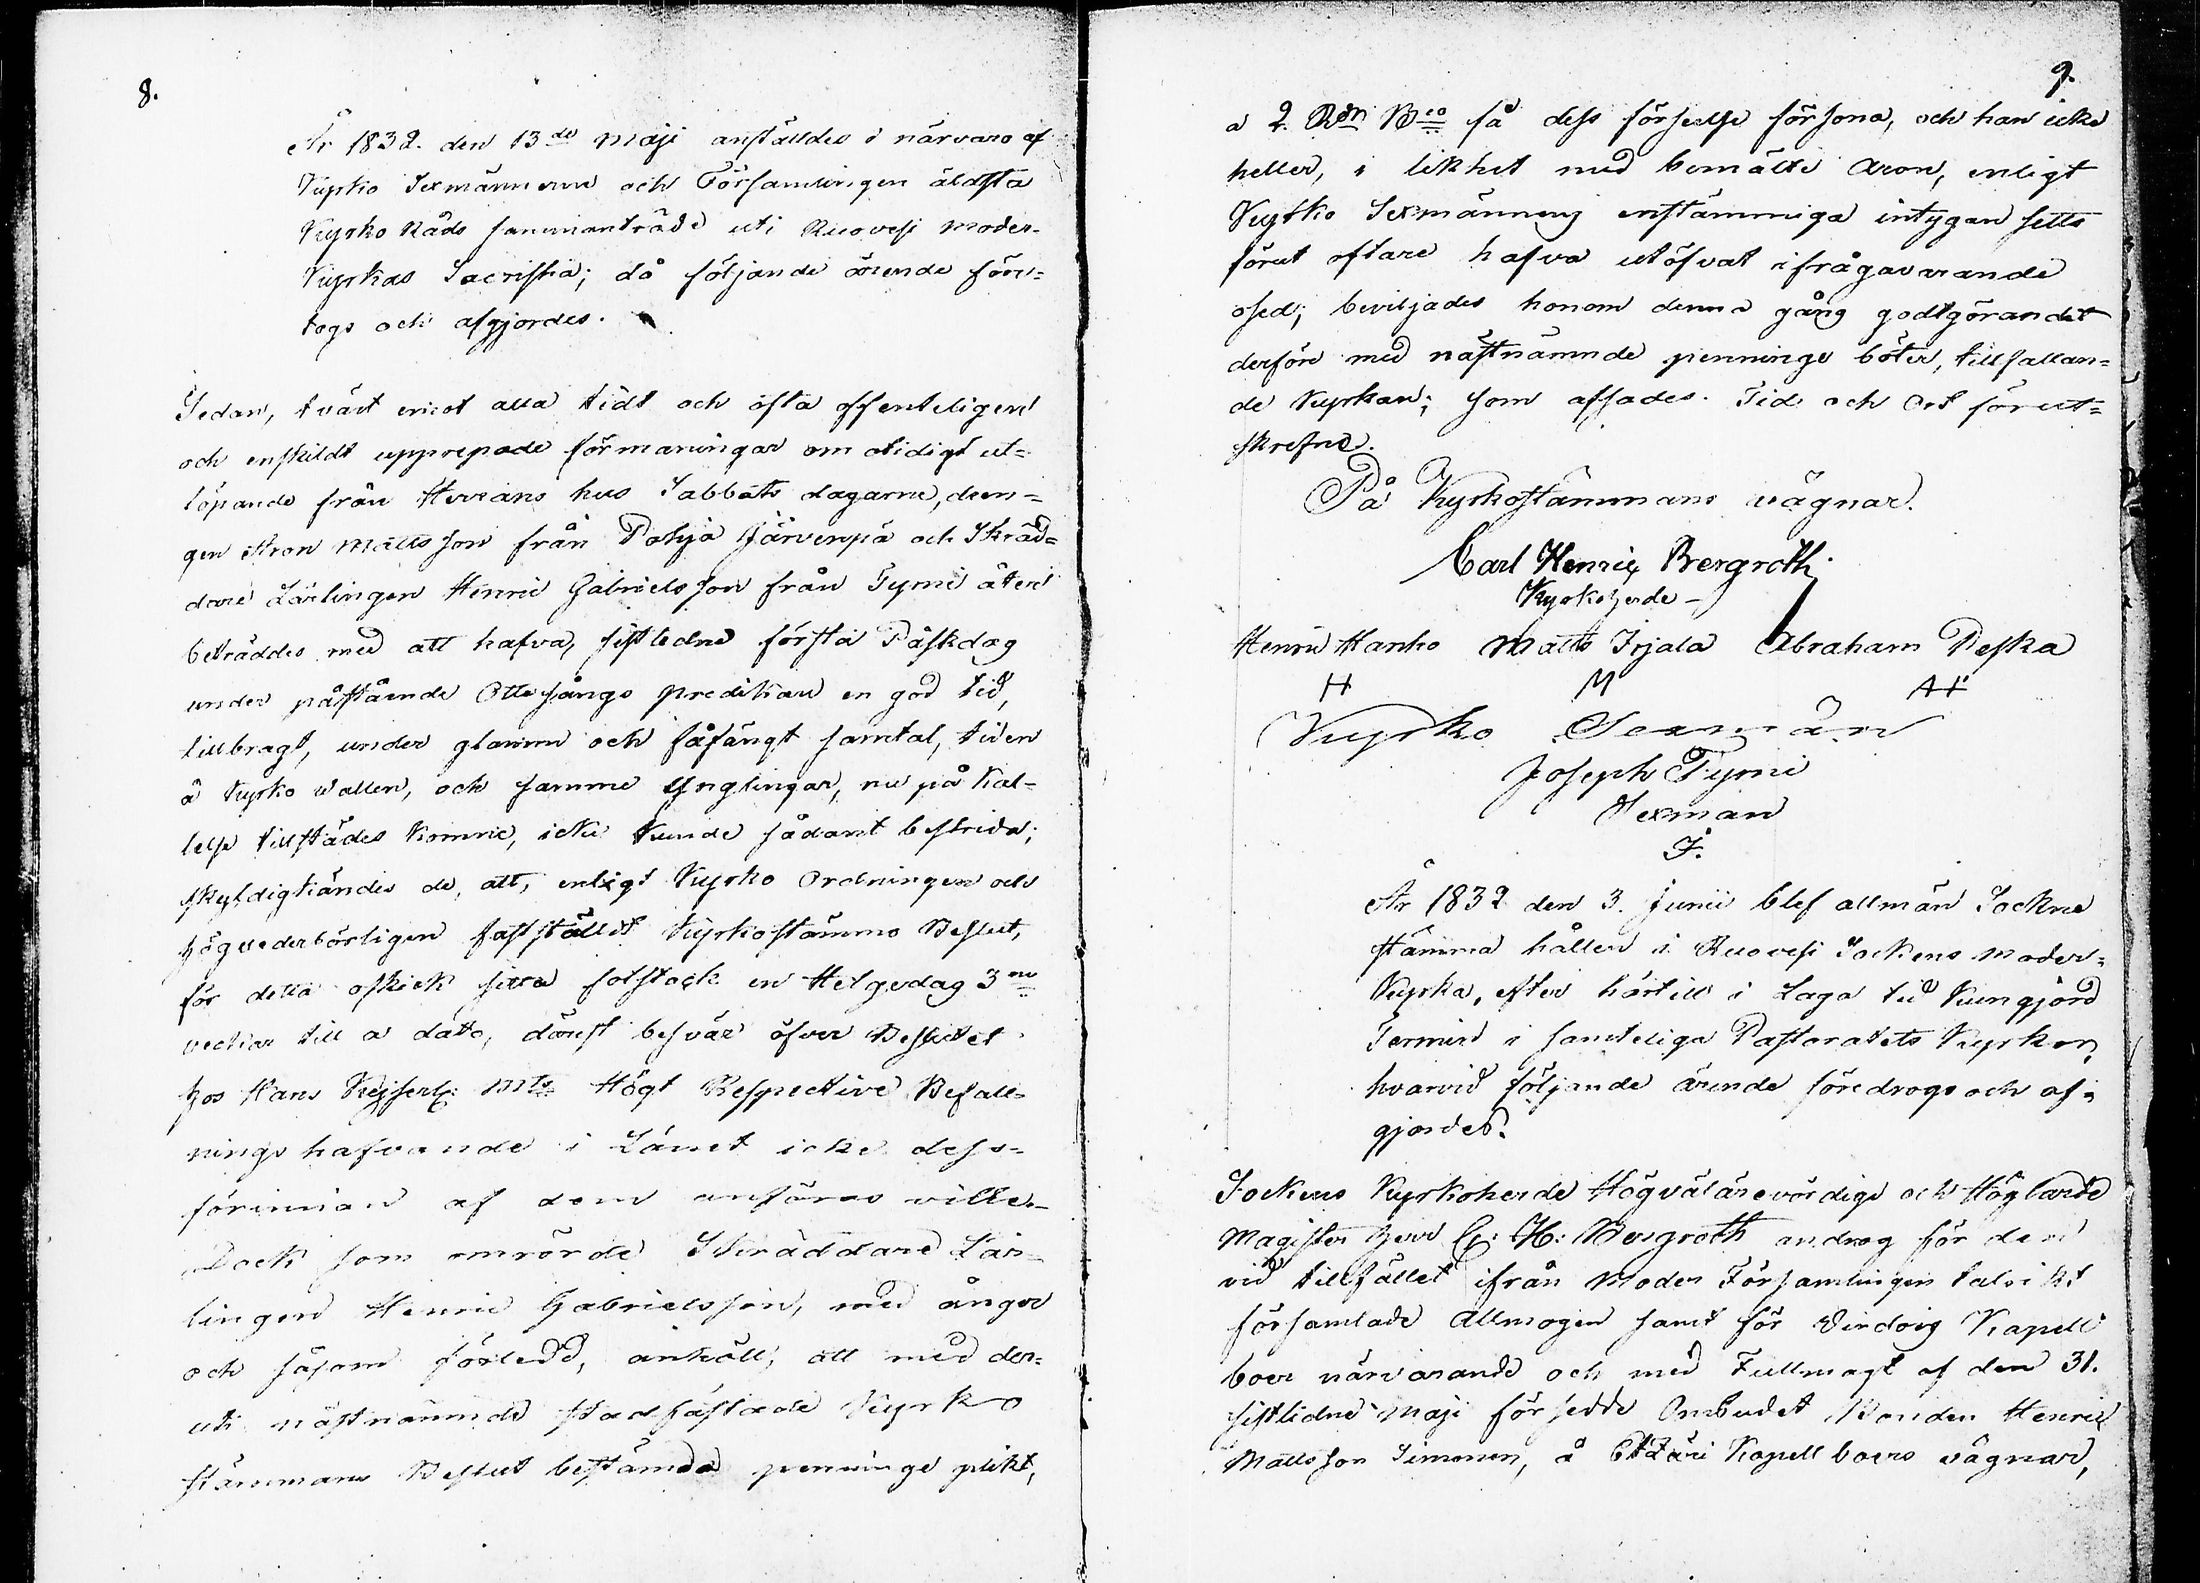 8.
År 1832. den 13de Maji anställdes i närvaro af
Kyrko Sexmännerna och Församlingen äldsta
Kyrko Råds sammanträde uti Ruovesi moder-
Kyrkas Sacristia; då följande ärende före=
togs och afgjordes.
Sedan, tvärt emot alla tidt och ofta offenteligen
och enskildt upprepade förmaningar om otidigt ut=
löpande från Herrans hus Sabbats dagarne, dren=
gen Aron Mattsson från Pohja Järvenpä och Skräd=
dare Lärlingen Henric Gabrielsson från Tyrni åter
beträddes med att hafva, sistledne första Påskdag
under påstående Ottesångs predikan en god tid,
tillbragt, under glamm och fåfängt samtal, tiden
å Kyrko wallen, och samme Ynglingar, nu på Kal-
lelse tillstädes komne, icke kunde sådant bestrida;
skyldigkändes de, att, enligt Kyrko Ordningen och
högvederbörligen fastställdt Kyrkostämmo Beslut,
för detta oskick sitta i stock en Helgedag 3ne
veckor till a dato, därest besvär öfver Beslutet
hos Hans Kejserl: Mts Högt Respective Befall-
ningshafvande i Länet icke dess-
förinnan af dem anföras ville.
Dock som omrörde Skräddare Lär-
lingen Henric Gabrielsson, med ånger
och såsom förledd, anhöll, att med der-
uti nästnämnde stadfästade Kyrko
stämmans Beslut bestämda penninge plikt,
9.
a 2 Rdr Bco få dess förseelse försona, och han icke
heller, i likhet med bemälte Aron, enligt
Kyrko Sexmännens enstämmiga intygan setts
förut oftare hafva utöfvat ifrågavarande
osed; beviljades honom denna gång godtgörandet
derföre med nästnämnde penninge böter, tillfallan=
de Kyrkan; som afsades. Tid och Ort förut=
skrefne.
På Kyrkostämmans vägnar.
Carl Henric Bergroth
Kyrkoherde
Henric Hanho Matts Irjala Abraham Peska
H M AH
Kyrko Sexmän
Joseph Tyrni
Sexman
J.
År 1832 den 3. Junii blef allmän Sockne
stämma hållen i Ruovesi Sockens moder=
Kyrka, efter härtill i Laga tid kungjord
Termin i samteliga Pastoratets Kyrkor,
hvarvid följande ärende föredrogs och af=
gjordes.
Sockens Kyrkoherde Högvälärevördige och Höglärde
Magister Herr C: H: Bergroth androg för den
vid tillfället ifrån Moder Församlingen talrikt
församlade Allmogen samt för Virdois Kapell
boer närvarande och med Fullmagt af den 31.
sistlidne Maji försedde Ombudet Bonden Henric
Mattsson Simonen, å Etzäri Kapell boers vägnar,